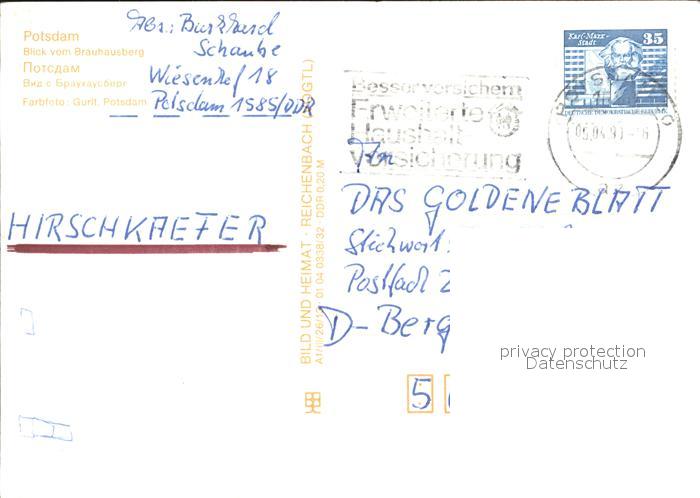 Potsdam
Blick vom Brauhausberg
Потсдам
Вид с Браухаусберге
Farbfoto: Gurlt, Potsdam
Abs.: Burkhard
Schaube
Wiesenhof 18
Potsdam 1585/DDR
HIRSCHKAEFER
BILD UND HEIMAT · REICHENBACH (VOGTL)
A1/III/26/13 01 04 0338/32 · DDR 0,20 M
Besser versichern
Erweiterte
Haushalt
versicherung
POTSDAM
05.04.90
Karl-Marx-
Stadt
35
DEUTSCHE DEMOKRATISCHE REPUBLIK
An
DAS GOLDENE BLATT
Stichwort:
Postfach 2
D-Berg
5
privacy protection
Datenschutz